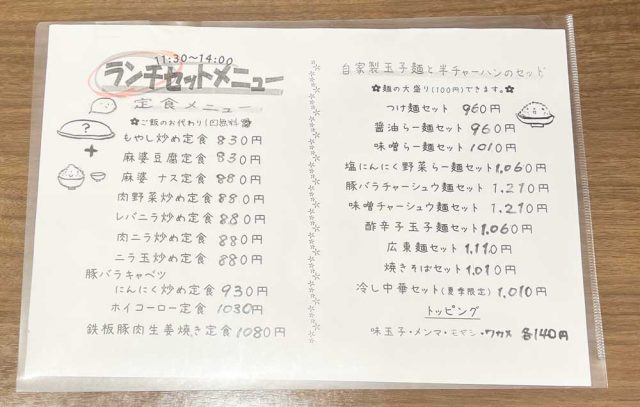 11:30~14:00
ランチセットメニュー
定食メニュー
✿ご飯のお代わり1回無料✿
?
+
もやし炒め定食 830円
麻婆豆腐定食 830円
麻婆ナス定食 880円
肉野菜炒め定食 880円
レバニラ炒め定食 880円
肉ニラ炒め定食 880円
ニラ玉定食 880円
豚バラキャベツ
にんにく炒め定食 930円
ホイコーロー定食 1030円
鉄板豚肉生姜焼き定食 1080円
自家製玉子麺と半チャーハンのセット
✿麺の大盛り(100円)できます。✿
つけ麺セット 960円
醤油らー麺セット 960円
味噌らー麺セット 1010円
塩にんにく野菜らー麺セット 1.060円
豚バラチャーシュウ麺セット 1.210円
味噌チャーシュウ麺セット 1.210円
酢辛子玉子麺セット 1.060円
広東麺セット 1.110円
焼きそばセット 1.010円
冷し中華セット(夏季限定) 1.010円
トッピング
味玉子・メンマ・モヤシ・ワカメ 各140円